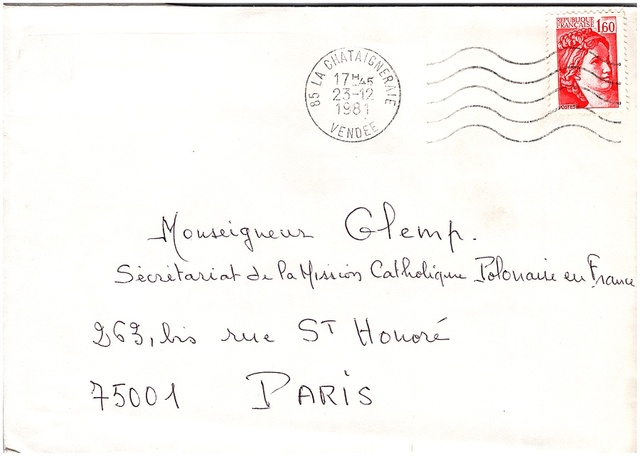 REPUBLIQUE
FRANÇAISE
1,60
POSTES
85 LA CHÂTAIGNERAIE
17H45
23-12
1981
VENDÉE
Monseigneur Glemp.
Sécrétariat de la Mission Catholique Polonaise en France
263, bis rue ST Honoré
75001 PARIS